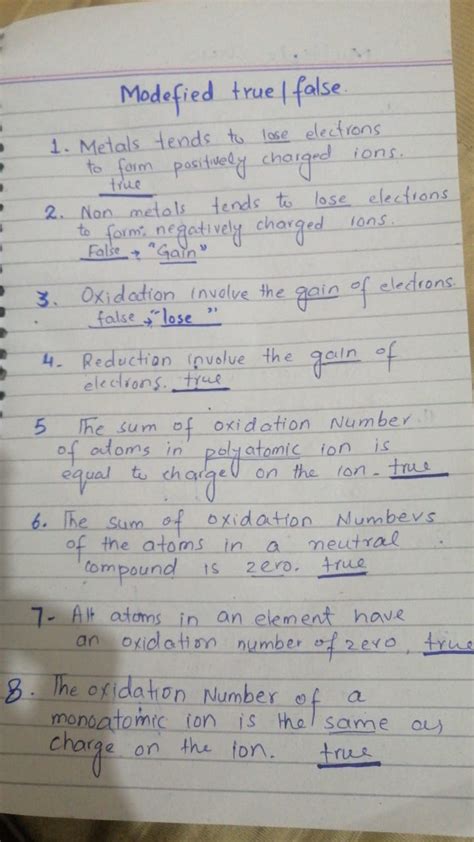 Modefied true/false.
1. Metals tends to lose electrons
to form positively charged ions.
true
2. Non metals tends to lose electrons
to form, negatively charged ions.
False → "Gain"
3. Oxidation involve the gain of eledrons
false → "lose"
4- Reduction involve the gain of
electrons. true
5 The sum of oxidation Number
of atoms in polyatomic ion is
equal to charged on the ion - true
6. The sum of oxidation Numbers
of the atoms in a neutral
compound is zero. true
7- All atoms in an element have
an oxidation number of zero, true
8. The oxidation Number of a
monoatomic ion is the same as
charge on the ion. true